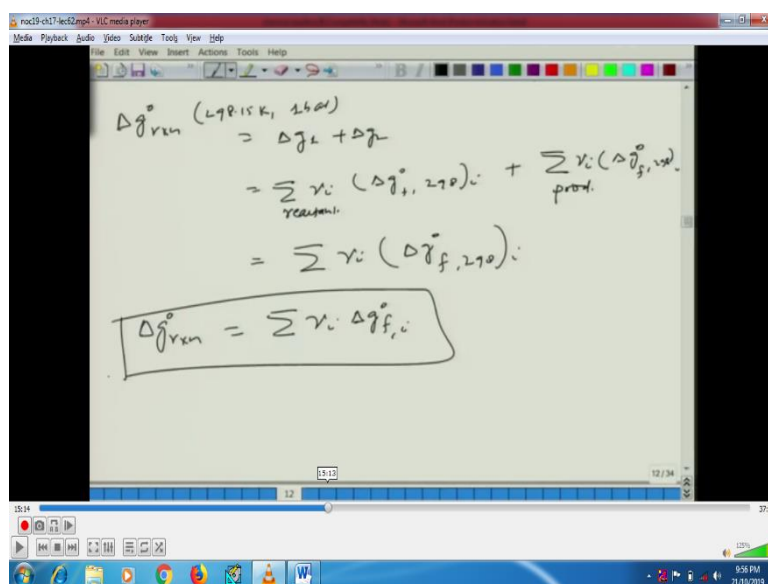 noc19-ch17-lec62.mp4 - VLC media player
Media Playback Audio Video Subtitle Tools View Help
File Edit View Insert Actions Tools Help
B I
Δg°rxn (298.15 K, 1 bar)
= Δg1 + Δg2
= Σ νi (Δg°f, 298)i + Σ νi (Δg°f, 298)i
reactant. prod.
= Σ νi (Δg°f, 298)i
Δg°rxn = Σ νi Δg°f, i
15:13
12/34
12
15:14
37:
125%
9:56 PM
21/10/2019